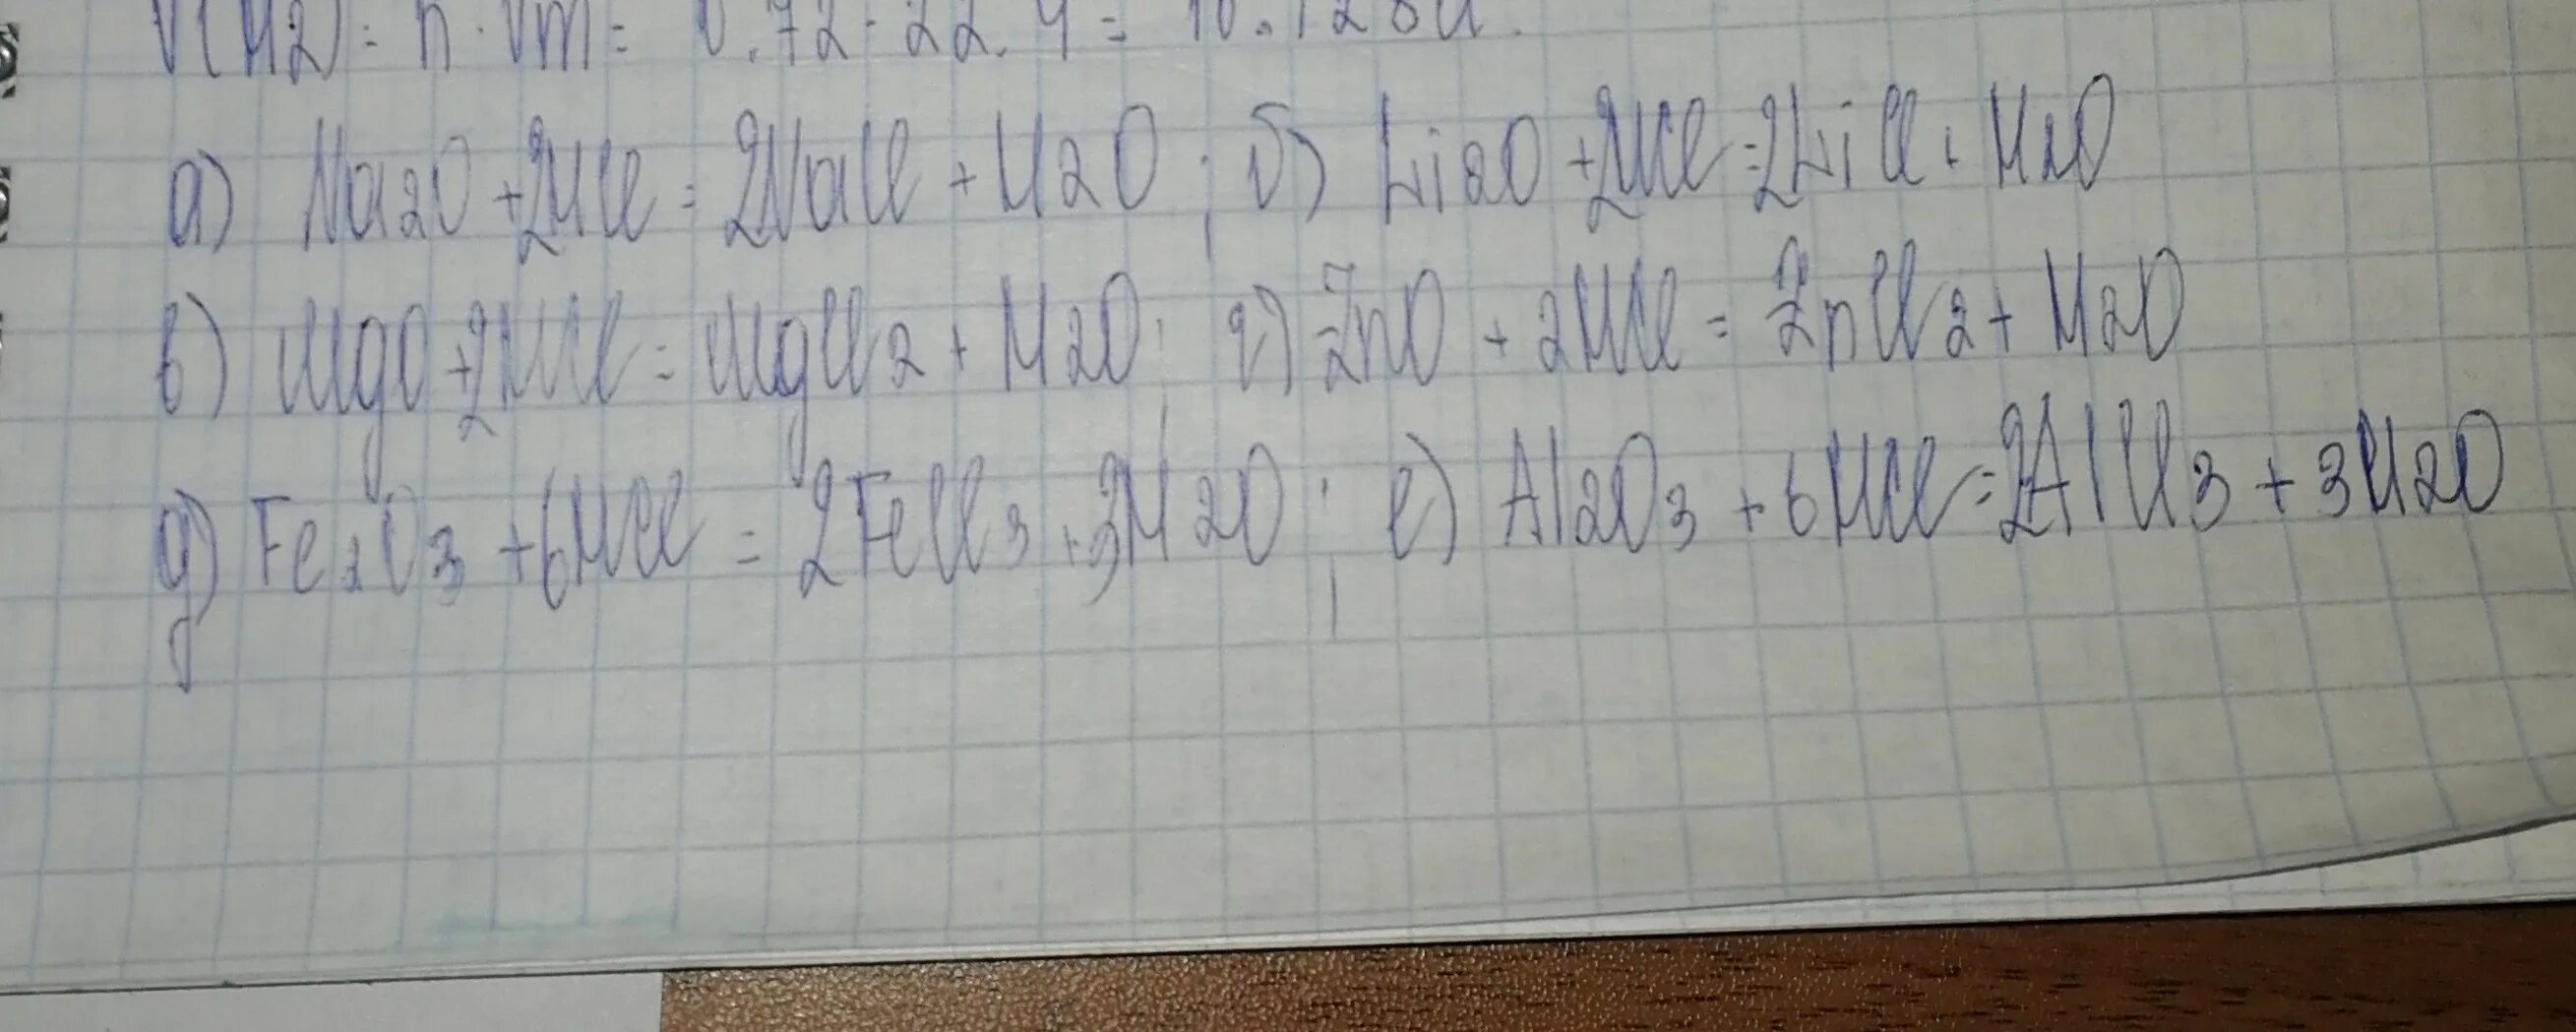 V(H2) = n · Vm = 0.72 · 22.4 = 16.128л.
а) Na2O + 2HCl = 2NaCl + H2O ; б) Li2O + 2HCl = 2LiCl + H2O
в) MgO + 2HCl = MgCl2 + H2O ; г) ZnO + 2HCl = ZnCl2 + H2O
д) Fe2O3 + 6HCl = 2FeCl3 + 3H2O ; е) Al2O3 + 6HCl = 2AlCl3 + 3H2O